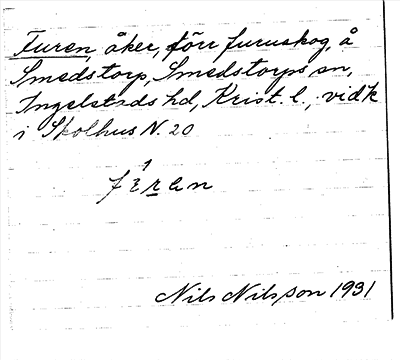 Furen, åker, förr furuskog, å
Smedstorp, Smedstorps sn,
Ingelstads hd, Krist. l., vid k
i Skolhus N. 20
Nils Nilsson 1931